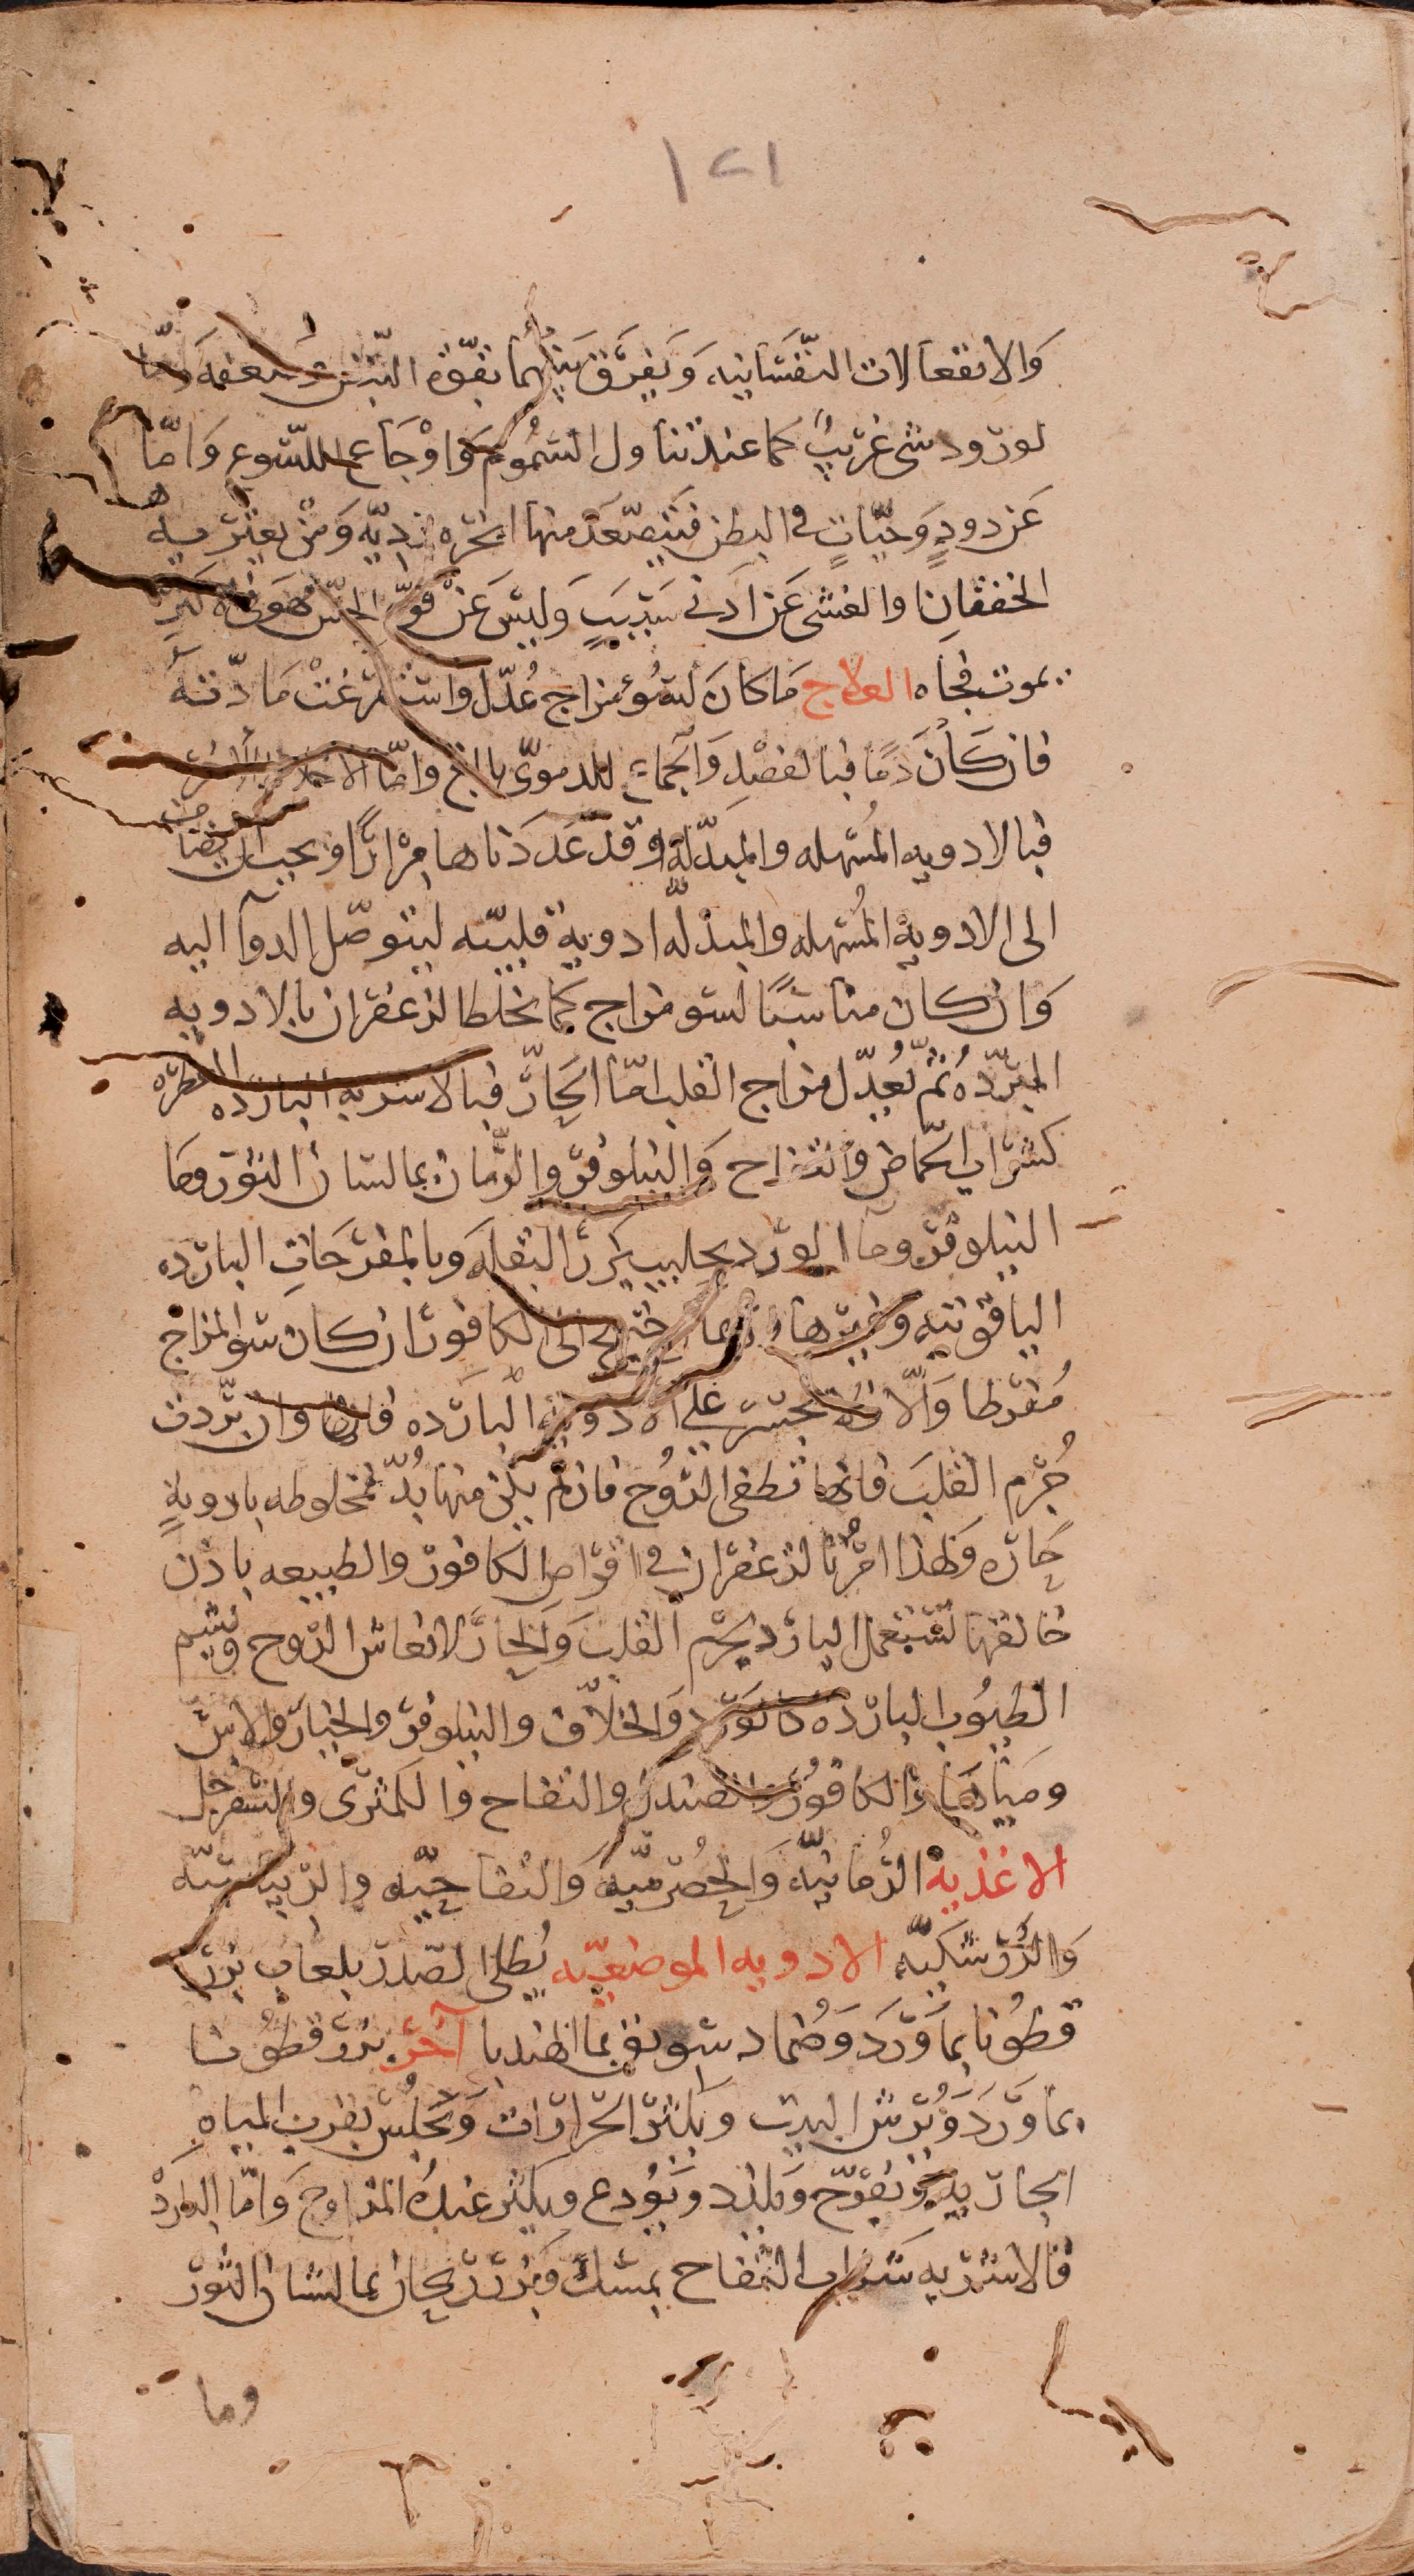 ١٢١
والانفعالات النفسانيه ويفرق بينهما بقوة النبض وضعفه واما
لورود شى غريب كما عند تناول السموم واوجاع اللسوع واما
عن دود وحيات فى البطن فيتصعد منها ابخره رديه ومن يعتريه
الخفقان والغشى عن ادنى سبب وليس عن قوة الحس فهو فى
يموت فجاه العلاج ما كان لسوء مزاج عدل واستفرغت مادته
فان كان دما فبالفصد والجماع للدموى بالغ واما الاخلاط الاخر
فبالادويه المسهله والمبدله وقد عددناها مرارا ويجب ان يضاف
الى الادوية المسهله والمبدله ادوية قلبيه ليتوصل الدوآ اليه
وان كان مناسبا لسو مزاج كما نخلط الزعفران بالادويه
المبرده ثم يعدل مزاج القلب اما الحار فبالاشربه البارده العطره
كشراب الحماض والتفاح والنيلوفر والرمان بما لسان الثور وما
النيلوفر وما الورد بحليب بزر البقله وبالمفرحات البارده
الياقوتيه وغيرها وربما احتيج الى الكافور ان كان سو المزاج
مفرطا والا فلا تجسر على الادويه البارده فانها وان بردت
جرم القلب فانها تطفى الروح فان لم يكن منها بد فمخلوطه بادوية
حاره ولهذا امرنا لزعفران فى اقراص الكافور والطبيعه باذن
خالقها تستعمل البارد بجرم القلب والحار لانعاش الروح ويشم
الطيوب البارده كالورد والخلاف والنيلوفر والخيار والاس
ومياهها والكافور والصندل والتفاح والكمثرى والسفرجل
الاغذيه الرمانيه والحصرميه والتفاحيه والزبيبيه
والزرشكيه الادويه الموضعيه يطلى الصدر بلعاب بزر
قطونا بما ورد وضماد سويق بما الهندبا آخر بزر قطونا
بما ورد ويرش البيت ويكثر الخرارات ويجلس بقرب المياه
الجاريه ويفرح ويلذذ ويودع ويكثر عنده المزاوح واما البارد
فالاشربه شراب التفاح بمسك وبزر ريحان بما لسان الثور
وما